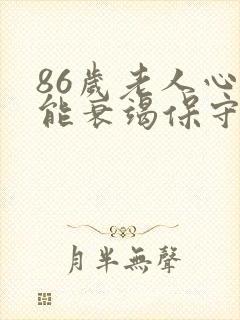 86歲老人心
能衰竭保守
月半無聲